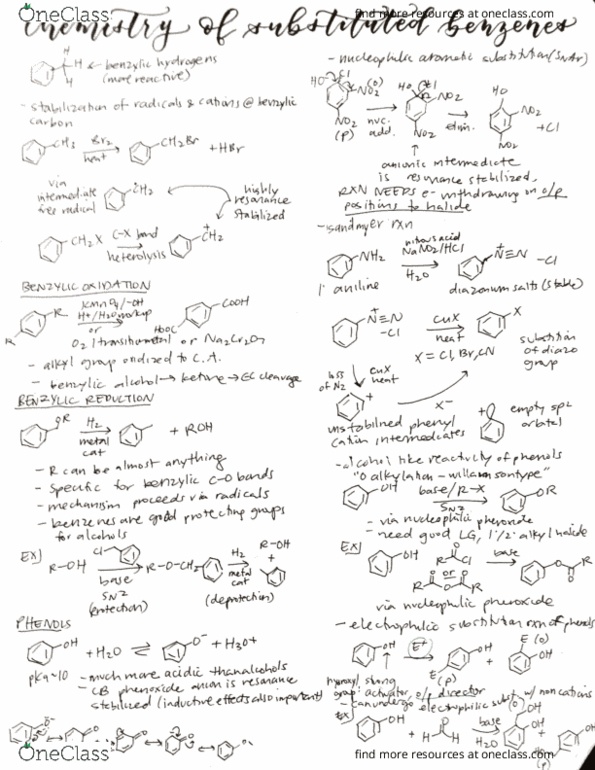 Chemistry of substituted benzenes
find more resources at oneclass.com
OneClass
H
H ← benzylic hydrogens
H (more reactive)
- stabilization of radicals & cations @ benzylic
carbon
CH3 Br2 CH2Br + HBr
heat
via
intermediate
free radical
CH2
highly
resonance
stabilized
CH2X C-X bond CH2
heterolysis
BENZYLIC OXIDATION
R KMnO4/-OH COOH
H+/H2O workup
R or HOOC
O2/transition metal or Na2Cr2O7
- alkyl group oxidized to C.A.
- benzylic alcohol → ketone → CC cleavage
BENZYLIC REDUCTION
OR H2 + ROH
metal
cat
- R can be almost anything
- Specific for benzylic C-O bonds
- mechanism proceeds via radicals
- benzenes are good protecting groups
for alcohols
EX) R-OH Cl R-O-CH2 H2 R-OH
base metal +
SN2 cat
(protection) (deprotection)
PHENOLS
OH + H2O ⇌ O- + H3O+
pKa~10 - much more acidic than alcohols
- CB phenoxide anion is resonance
stabilized (inductive effects also important)
OneClass
- nucleophilic aromatic substitution (SNAr)
HO- Cl NO2 (o) HO Cl NO2 HO NO2
NO2 nuc. NO2 elim. NO2 + Cl
(p) add.
anionic intermediate
is resonance stabilized.
RXN NEEDS e- withdrawing on o/p
positions to halide
- sandmeyer rxn
NH2 nitrous acid N≡N -Cl
NaNO2/HCl
H2O
1° aniline diazonium salts (stable)
N≡N CuX X
-Cl heat
X = Cl, Br, CN
substitution
of diazo
group
loss
of N2
CuX
heat
X-
unstabilized phenyl
cation, intermediates
empty sp2
orbital
- alcohol like reactivity of phenols
"O alkylation - williamson type"
OH base/R-X OR
SN2
- via nucleophilic phenoxide
- need good LG, 1°/2° alkyl halide
EX) OH O base O
R Cl O R
or
O O
R O R
via nucleophilic phenoxide
- electrophilic substitution rxn of phenols
OH E+ OH E (o)
E (p) + OH
hydroxyl, strong
group: activator, o/p director
- can undergo electrophilic subst w/ non cations
Ex) OH O base OH OH
+ H H H2O + OH
find more resources at oneclass.com